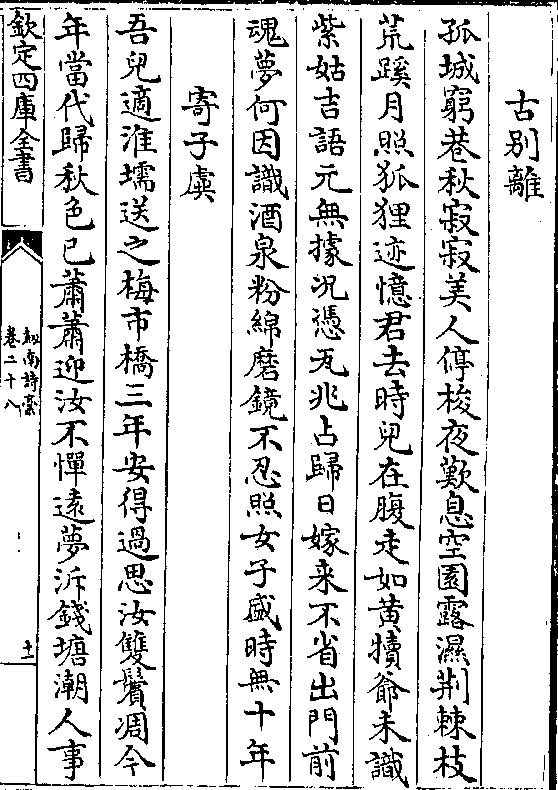 古别離
孤城窮巷秋寂寂美人停梭夜歎息空園露濕荆棘枝
荒蹊月照狐狸迹憶君去時兒在腹走如黄犢爺未識
紫姑吉語元無據况憑瓦兆占歸日嫁来不省出門前
魂夢何因識酒泉粉綿磨鏡不忍照女子盛時無十年
寄子虡
吾兒適淮壖送之梅市橋三年安得過思汝雙鬢凋今
年當代歸秋色已蕭蕭迎汝不憚逺夢泝錢塘潮人事
欽定四庫全書
劒南詩藁
卷二十八
十一